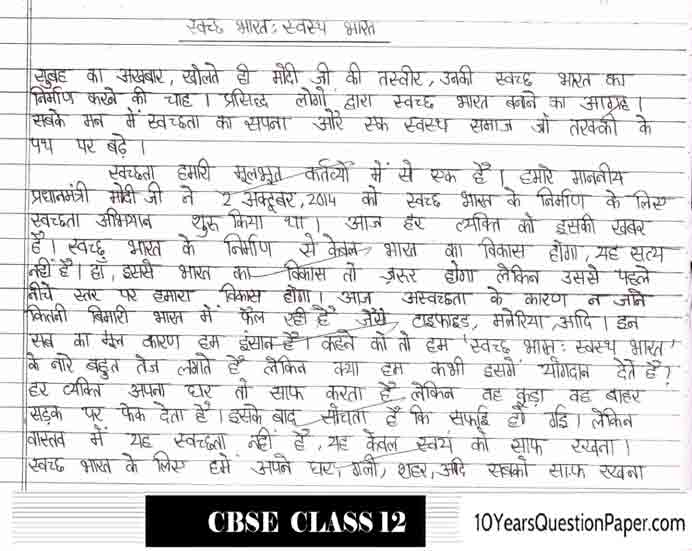 स्वच्छ भारत : स्वस्थ भारत
सुबह का अखबार, खोलते ही मोदी जी की तस्वीर, उनकी स्वच्छ भारत का
निर्माण करने की चाह । प्रसिद्ध लोगों द्वारा स्वच्छ भारत बनने का आग्रह ।
सबके मन में स्वच्छता का सपना और एक स्वस्थ समाज जो तरक्की के
पथ पर बढ़े ।
स्वच्छता हमारी मूलभूत कर्तव्यों में से एक है । हमारे माननीय
प्रधानमंत्री मोदी जी ने 2 अक्टूबर, 2014 को स्वच्छ भारत के निर्माण के लिए
स्वच्छता अभियान शुरू किया था । आज हर व्यक्ति को इसकी खबर
है । स्वच्छ भारत के निर्माण से केवल भारत का विकास होगा, यह सत्य
नहीं है । हां, इससे भारत का विकास तो ज़रूर होगा लेकिन उससे पहले
नीचे स्तर पर हमारा विकास होगा । आज अस्वच्छता के कारण न जाने
कितनी बिमारी भारत में फैल रही है जैसे, टाइफाइड, मलेरिया, आदि । इन
सब का मूल कारण हम इंसान है । कहने को तो हम 'स्वच्छ भारत : स्वस्थ भारत'
के नारे बहुत तेज लगाते हैं लेकिन क्या हम कभी इसमें योगदान देते हैं ?
हर व्यक्ति अपना घर तो साफ करता है लेकिन वह कूड़ा वह बाहर
सड़क पर फेक देता है । इसके बाद सोचता है कि सफाई हो गई । लेकिन
वास्तव में यह स्वच्छता नहीं है, यह केवल स्वयं को साफ रखना ।
स्वच्छ भारत के लिए हमें अपने घर, गली, शहर, आदि सबको साफ रखना
CBSE CLASS 12
10YearsQuestionPaper.com